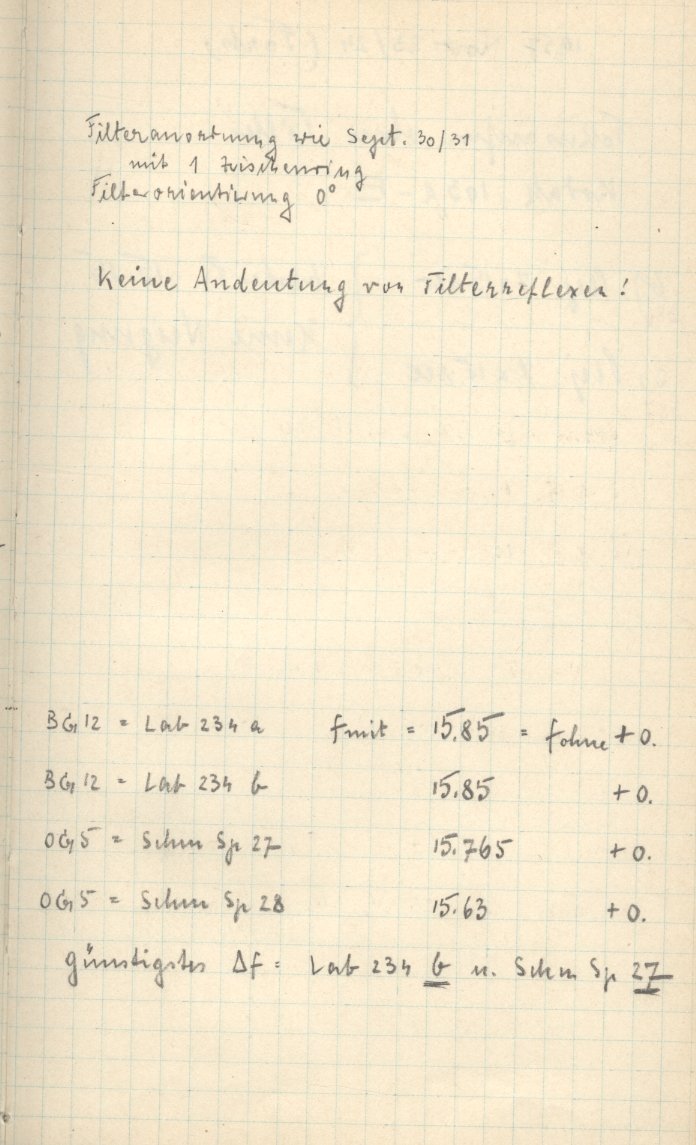 Filteranordnung wie Sept. 30/31
mit 1 Zwischenring
Filterorientierung 0°
Keine Andeutung von Filterreflexen!
BG12 = Lab 234 a fmit = 15.85 = fohne + 0.
BG12 = Lab 234 b 15.85 + 0.
OG5 = Schm Sp 27 15.765 + 0.
OG5 = Schm Sp 28 15.63 + 0.
günstigstes Δf = Lab 234 b u. Schm Sp 27